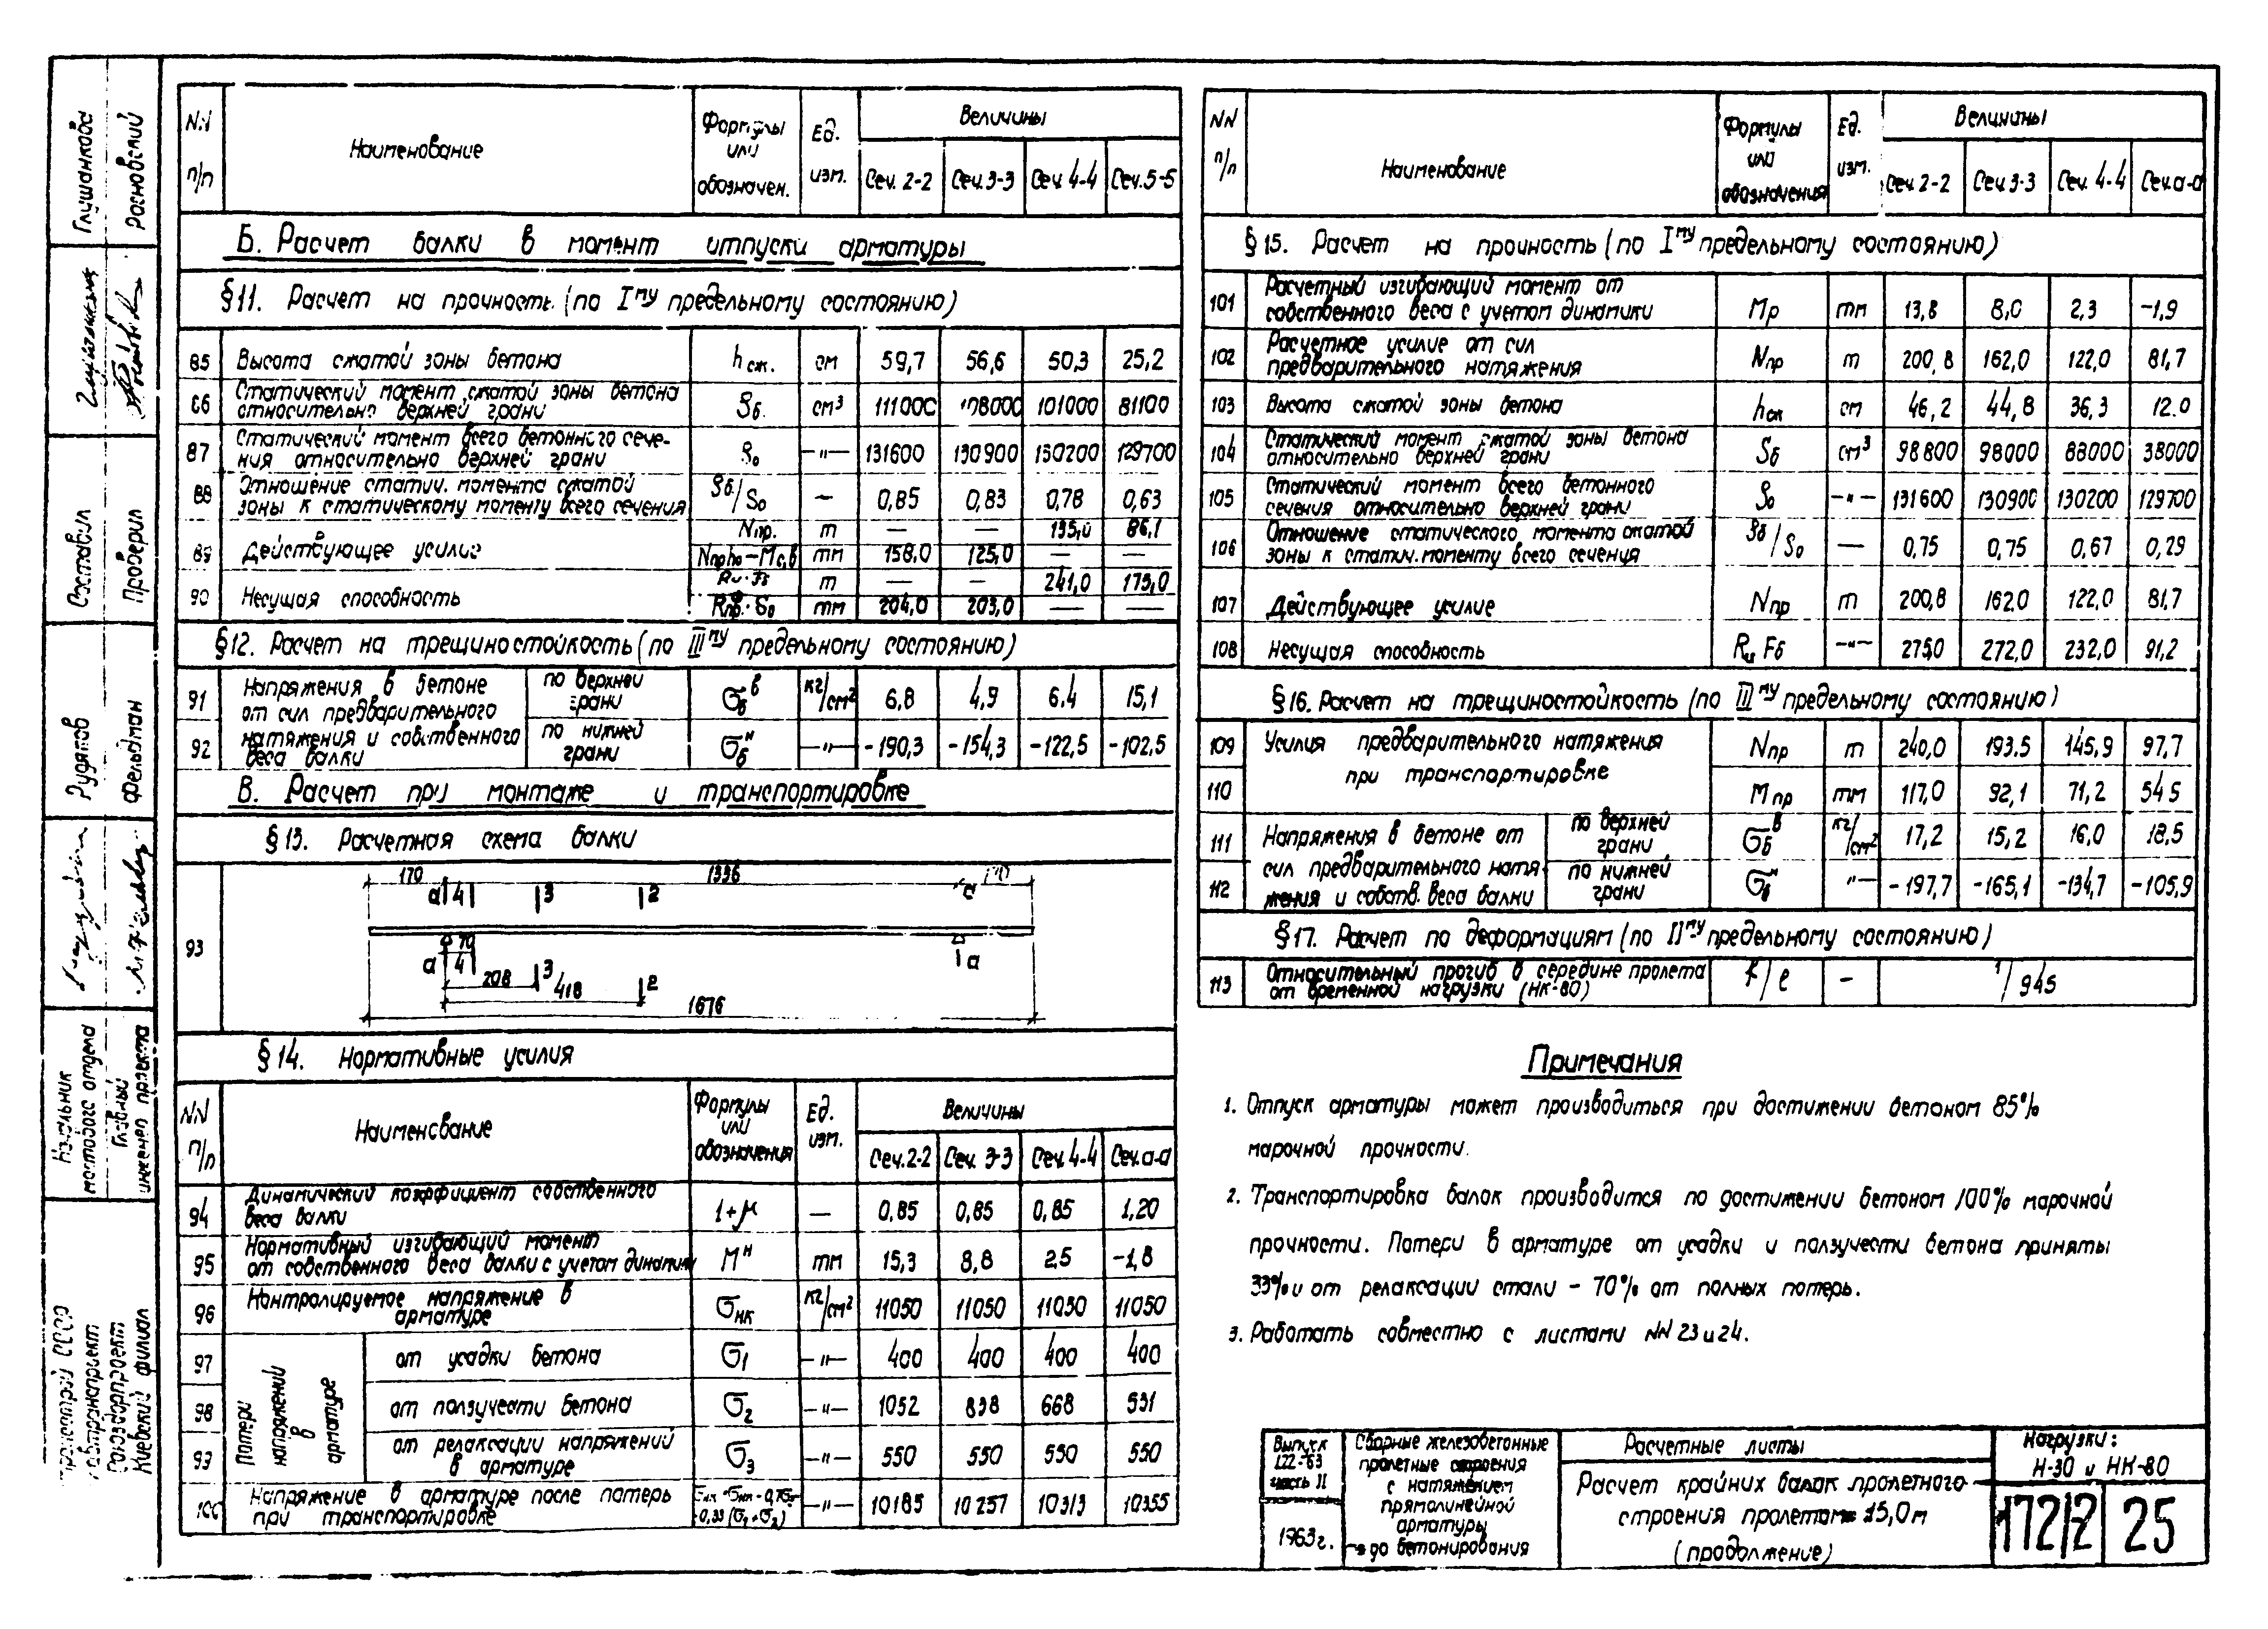 NN п/п | Наименование | Формулы или обозначен. | Ед. изм. | Величины
Сеч. 2-2 | Сеч. 3-3 | Сеч. 4-4 | Сеч. 5-5
Б. Расчет балки в момент отпуски арматуры
§11. Расчет на прочность (по Iму предельному состоянию)
85 | Высота сжатой зоны бетона | hсж. | см | 59,7 | 56,6 | 50,3 | 25,2
86 | Статический момент сжатой зоны бетона относительно верхней грани | Sб. | см³ | 111000 | 108000 | 101000 | 81100
87 | Статический момент всего бетонного сечения относительно верхней грани | S₀ | —"— | 131600 | 130900 | 130200 | 129700
88 | Отношение статич. момента сжатой зоны к статическому моменту всего сечения | Sб/S₀ | — | 0,85 | 0,83 | 0,78 | 0,63
89 | Действующее усилие | Nпр. | т | — | — | 135,0 | 86,1
Nпрh₀-Mс,в | тм | 158,0 | 125,0 | — | —
90 | Несущая способность | Rи·Fб | т | — | — | 241,0 | 175,0
Rпр·S₀ | тм | 204,0 | 203,0 | — | —
§12. Расчет на трещиностойкость (по IIIму предельному состоянию)
91 | Напряжения в бетоне от сил предварительного натяжения и собственного веса балки | по верхней грани | σбв | кг/см² | 6,8 | 4,9 | 6,4 | 15,1
92 | по нижней грани | σбн | —"— | -190,3 | -154,3 | -122,5 | -102,5
В. Расчет при монтаже и транспортировке
§13. Расчетная схема балки
93
170 | 1336
а 4 3 2 а
70
а 4 3 2 а
208
418
1676
§14. Нормативные усилия
NN п/п | Наименование | Формулы или обозначения | Ед. изм. | Величины
Сеч. 2-2 | Сеч. 3-3 | Сеч. 4-4 | Сеч. а-а
94 | Динамический коэффициент собственного веса балки | 1+μ | — | 0,85 | 0,85 | 0,85 | 1,20
95 | Нормативный изгибающий момент от собственного веса балки с учетом динамики | Mн | тм | 15,3 | 8,8 | 2,5 | -1,8
96 | Контролируемое напряжение в арматуре | σнк | кг/см² | 11050 | 11050 | 11050 | 11050
Потери напряжений в арматуре
97 | от усадки бетона | σ₁ | —"— | 400 | 400 | 400 | 400
98 | от ползучести бетона | σ₂ | —"— | 1052 | 838 | 668 | 531
99 | от релаксации напряжений в арматуре | σ₃ | —"— | 550 | 550 | 550 | 550
100 | Напряжение в арматуре после потерь при транспортировке | —"— | 10185 | 10257 | 10313 | 10355
NN п/п | Наименование | Формулы или обозначения | Ед. изм. | Величины
Сеч. 2-2 | Сеч. 3-3 | Сеч. 4-4 | Сеч. а-а
§15. Расчет на прочность (по Iму предельному состоянию)
101 | Расчетный изгибающий момент от собственного веса с учетом динамики | Mр | тм | 13,8 | 8,0 | 2,3 | -1,9
102 | Расчетное усилие от сил предварительного натяжения | Nпр | т | 200,8 | 162,0 | 122,0 | 81,7
103 | Высота сжатой зоны бетона | hсж | см | 46,2 | 44,8 | 36,3 | 12.0
104 | Статический момент сжатой зоны бетона относительно верхней грани | Sб | см³ | 98800 | 98000 | 88000 | 38000
105 | Статический момент всего бетонного сечения относительно верхней грани | S₀ | —"— | 131600 | 130900 | 130200 | 129700
106 | Отношение статического момента сжатой зоны к статич. моменту всего сечения | Sб/S₀ | — | 0,75 | 0,75 | 0,67 | 0,29
107 | Действующее усилие | Nпр | т | 200,8 | 162.0 | 122,0 | 81,7
108 | Несущая способность | Rи Fб | —"— | 275,0 | 272,0 | 232,0 | 91,2
§16. Расчет на трещиностойкость (по IIIму предельному состоянию)
109 | Усилия предварительного натяжения при транспортировке | Nпр | т | 240,0 | 193.5 | 145,9 | 97,7
110 | Mпр | тм | 117,0 | 92,1 | 71,2 | 54,5
111 | Напряжения в бетоне от сил предварительного натяжения и собств. веса балки | по верхней грани | σбв | кг/см² | 17,2 | 15,2 | 16,0 | 18,5
112 | по нижней грани | σбн | "— | -197,7 | -165,1 | -134,7 | -105,9
§17. Расчет по деформациям (по IIму предельному состоянию)
113 | Относительный прогиб в середине пролета от временной нагрузки (НК-80) | f/ℓ | — | 1/945
Примечания
1. Отпуск арматуры может производиться при достижении бетоном 85%
марочной прочности.
2. Транспортировка балок производится по достижении бетоном 100% марочной
прочности. Потери в арматуре от усадки и ползучести бетона приняты
33% и от релаксации стали - 70% от полных потерь.
3. Работать совместно с листами NN 23 и 24.
Выпуск 122-63 часть II
1963г.
Сборные железобетонные
пролетные строения
с натяжением
прямолинейной
арматуры
до бетонирования
Расчетные листы
Расчет крайних балок пролетного
строения пролетом 15,0м
(продолжение)
Нагрузки:
Н-30 и НК-80
172/2 | 25
Глушанков
Расновский
Составил
Проверил
Рудяков
Фельдман
Начальник
мостового отдела
Главный
инженер проекта
Союздорпроект
Киевский филиал